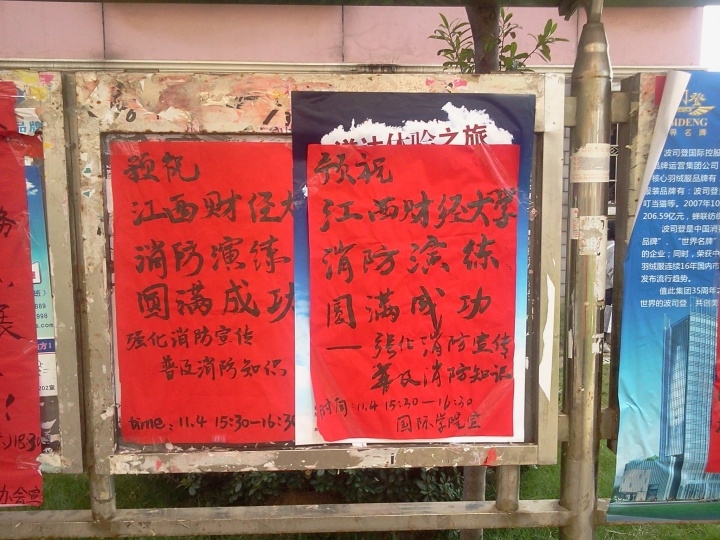 品牌
务
展
！
15:30
办会宣
预祝
江西财经大
消防演练
圆满成功
强化消防宣传
普及消防知识
time：11.4 15:30—16:30
体验之旅
预祝
江西财经大学
消防演练
圆满成功
——强化消防宣传
普及消防知识
时间：11.4 15:30—16:30
国际学院宣
IDENG
界名牌
波司登国际控股
品牌运营集团公司
核心羽绒服品牌有
服装品牌有：波司登
叮当猫等。2007年10
206.59亿元，蝉联纺织
波司登是中国消费
品牌"、"世界名牌"
的企业；同时，荣获中
羽绒服连续16年国内市
发布流行趋势。
值此集团35周年之
世界的波司登，共创